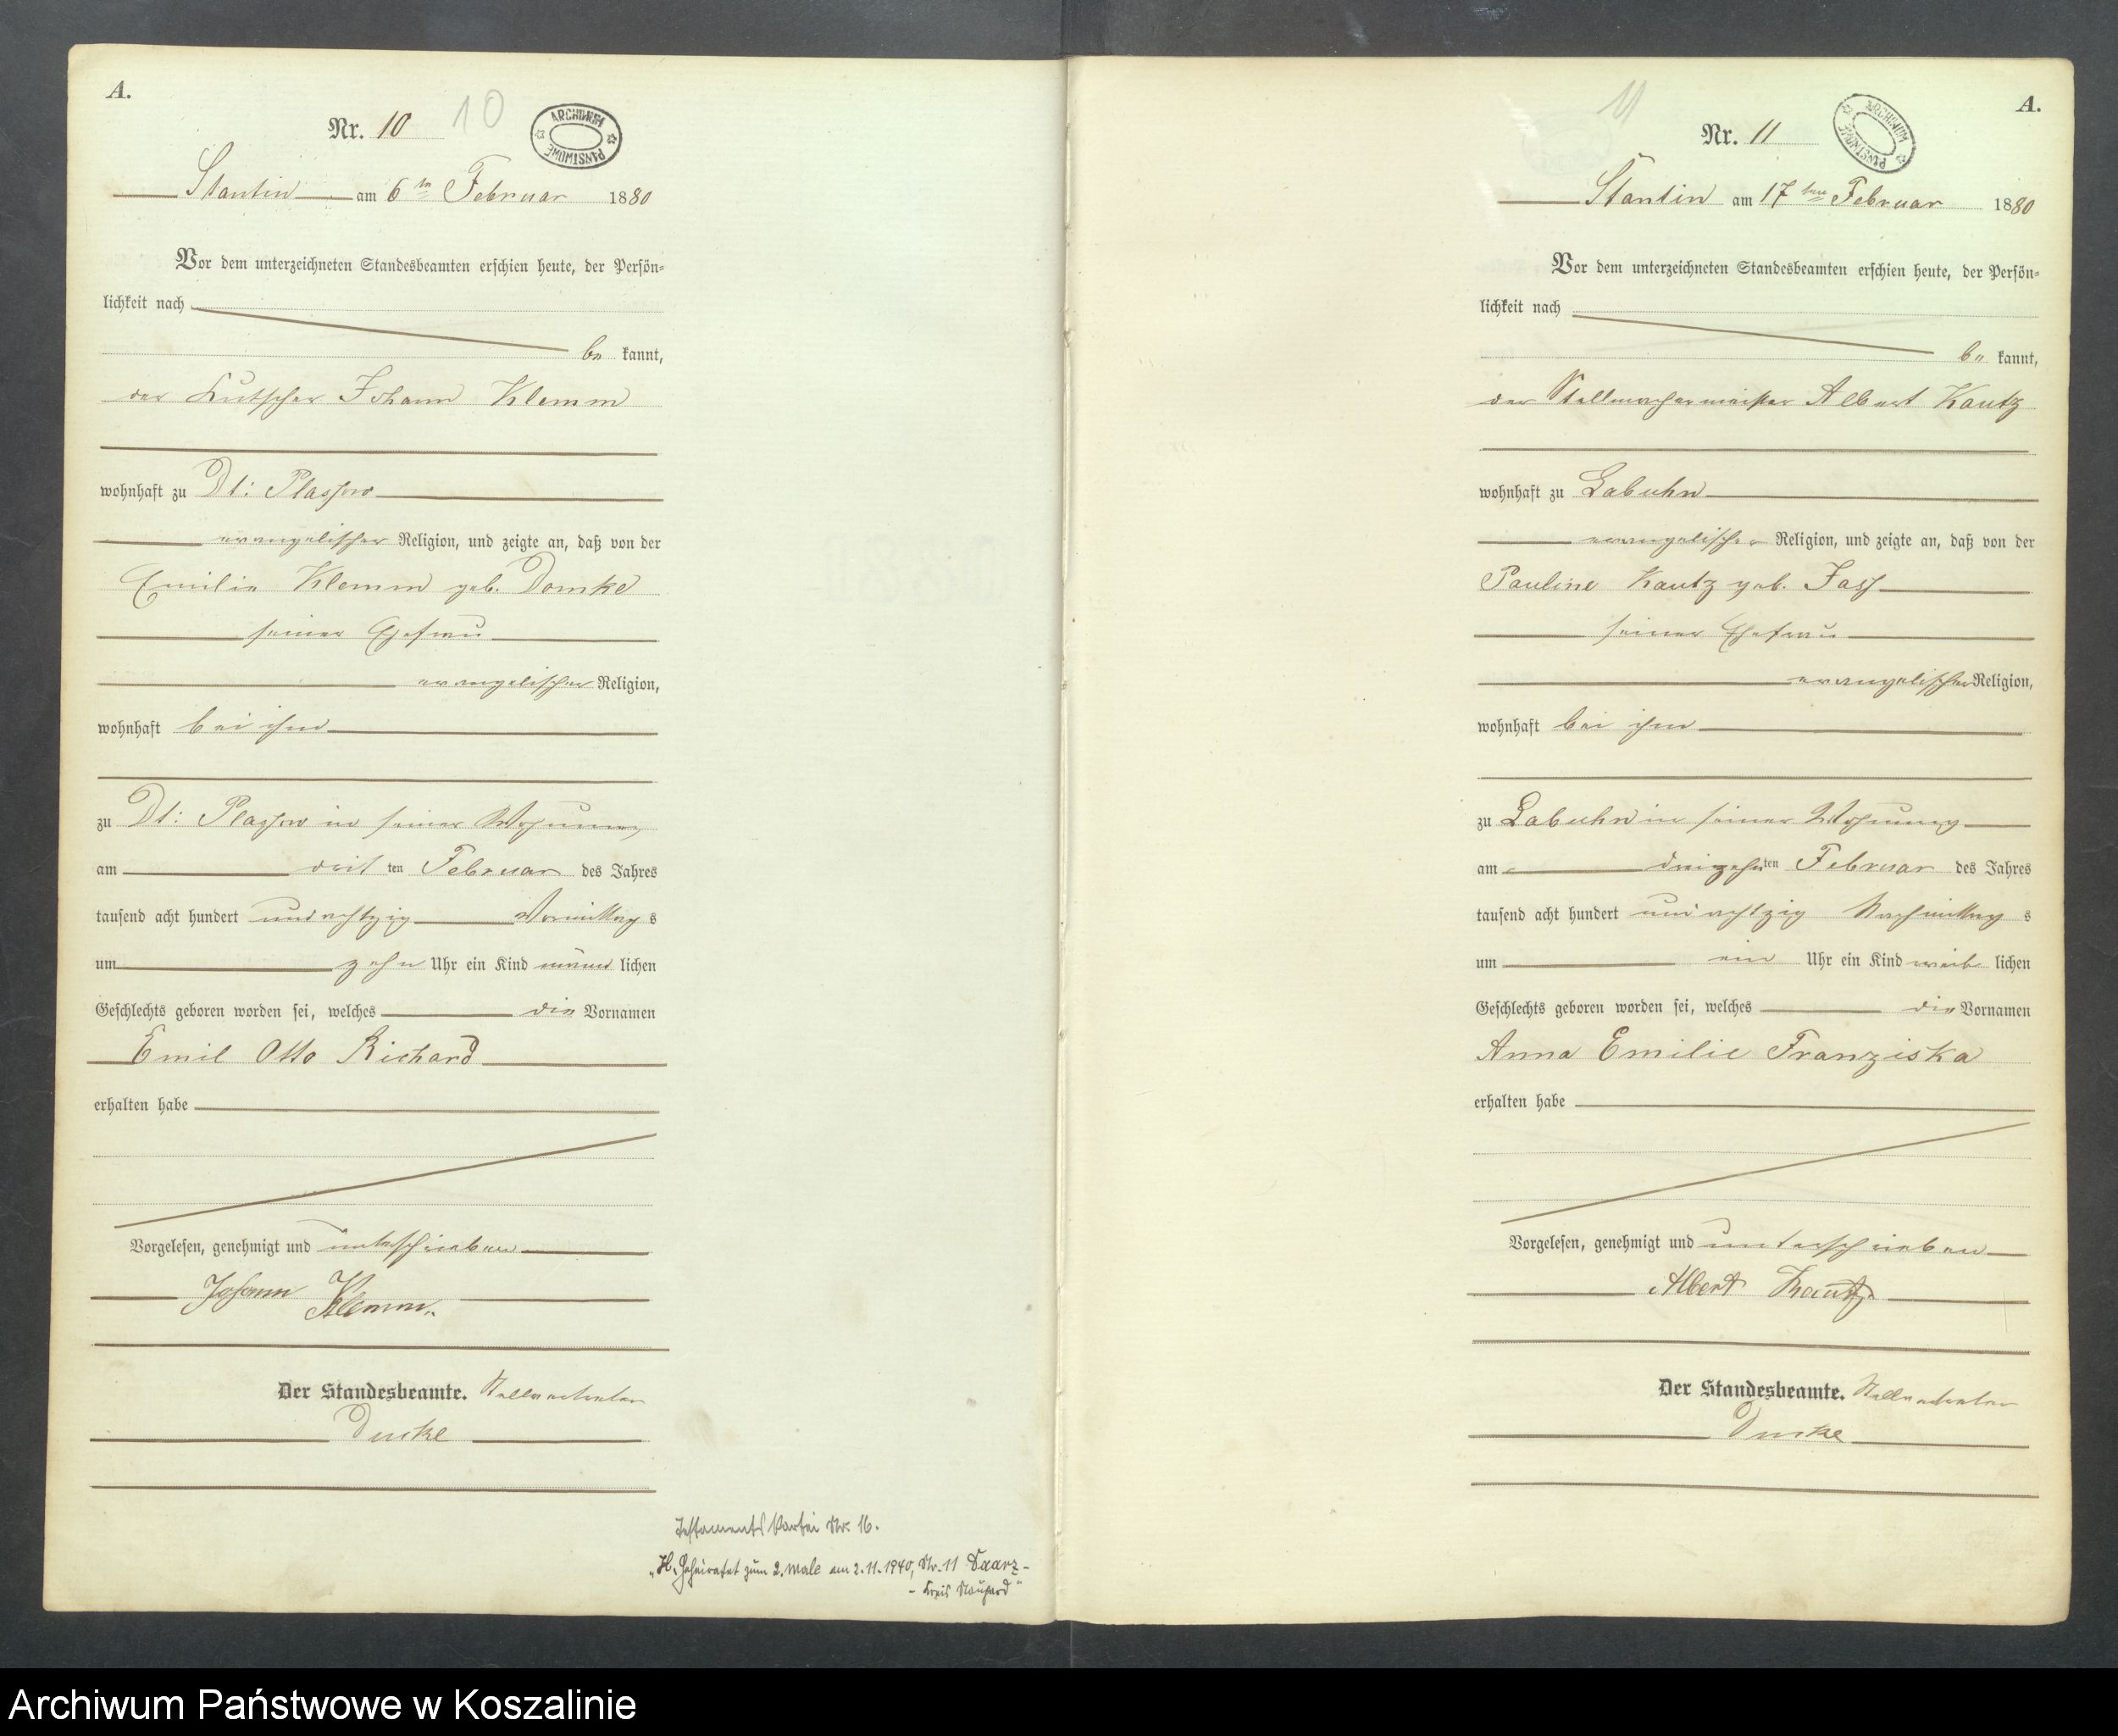 A.
Nr. 10
10
ARCHIWUM PAŃSTWOWE
Stantin am 6ten Februar 1880
Vor dem unterzeichneten Standesbeamten erschien heute, der Persön=
lichkeit nach
be kannt,
der Kutscher Johann Klemm
wohnhaft zu Dt: Plassow
evangelischer Religion, und zeigte an, daß von der
Emilie Klemm geb. Domke
seiner Ehefrau
evangelischer Religion,
wohnhaft bei ihm
zu Dt: Plassow in seiner Wohnung
am drit ten Februar des Jahres
tausend acht hundert und achtzig Vormittag s
um zehn Uhr ein Kind männ lichen
Geschlechts geboren worden sei, welches die Vornamen
Emil Otto Richard
erhalten habe
Vorgelesen, genehmigt und unterschrieben
Johann Klemm.
Der Standesbeamte. Stellvertreter
Testaments Kartei Nr. 16.
„H. Geheiratet zum 2. Male am 2.11.1940, Nr. 11 Saarz-
- Kreis Naugard"
A.
11
Nr. 11
ARCHIWUM PAŃSTWOWE
Stantin am 17ten Februar 1880
Vor dem unterzeichneten Standesbeamten erschien heute, der Persön=
lichkeit nach
be kannt,
der Stellmachermeister Albert Kautz
wohnhaft zu Labuhn
evangelischer Religion, und zeigte an, daß von der
Pauline Kautz geb. Jass
seiner Ehefrau
evangelischer Religion,
wohnhaft bei ihm
zu Labuhn in seiner Wohnung
am dreizehn ten Februar des Jahres
tausend acht hundert und achtzig Nachmittag s
um ein Uhr ein Kind weib lichen
Geschlechts geboren worden sei, welches die Vornamen
Anna Emilie Franziska
erhalten habe
Vorgelesen, genehmigt und unterschrieben
Albert Kautz
Der Standesbeamte. Stellvertreter
Archiwum Państwowe w Koszalinie